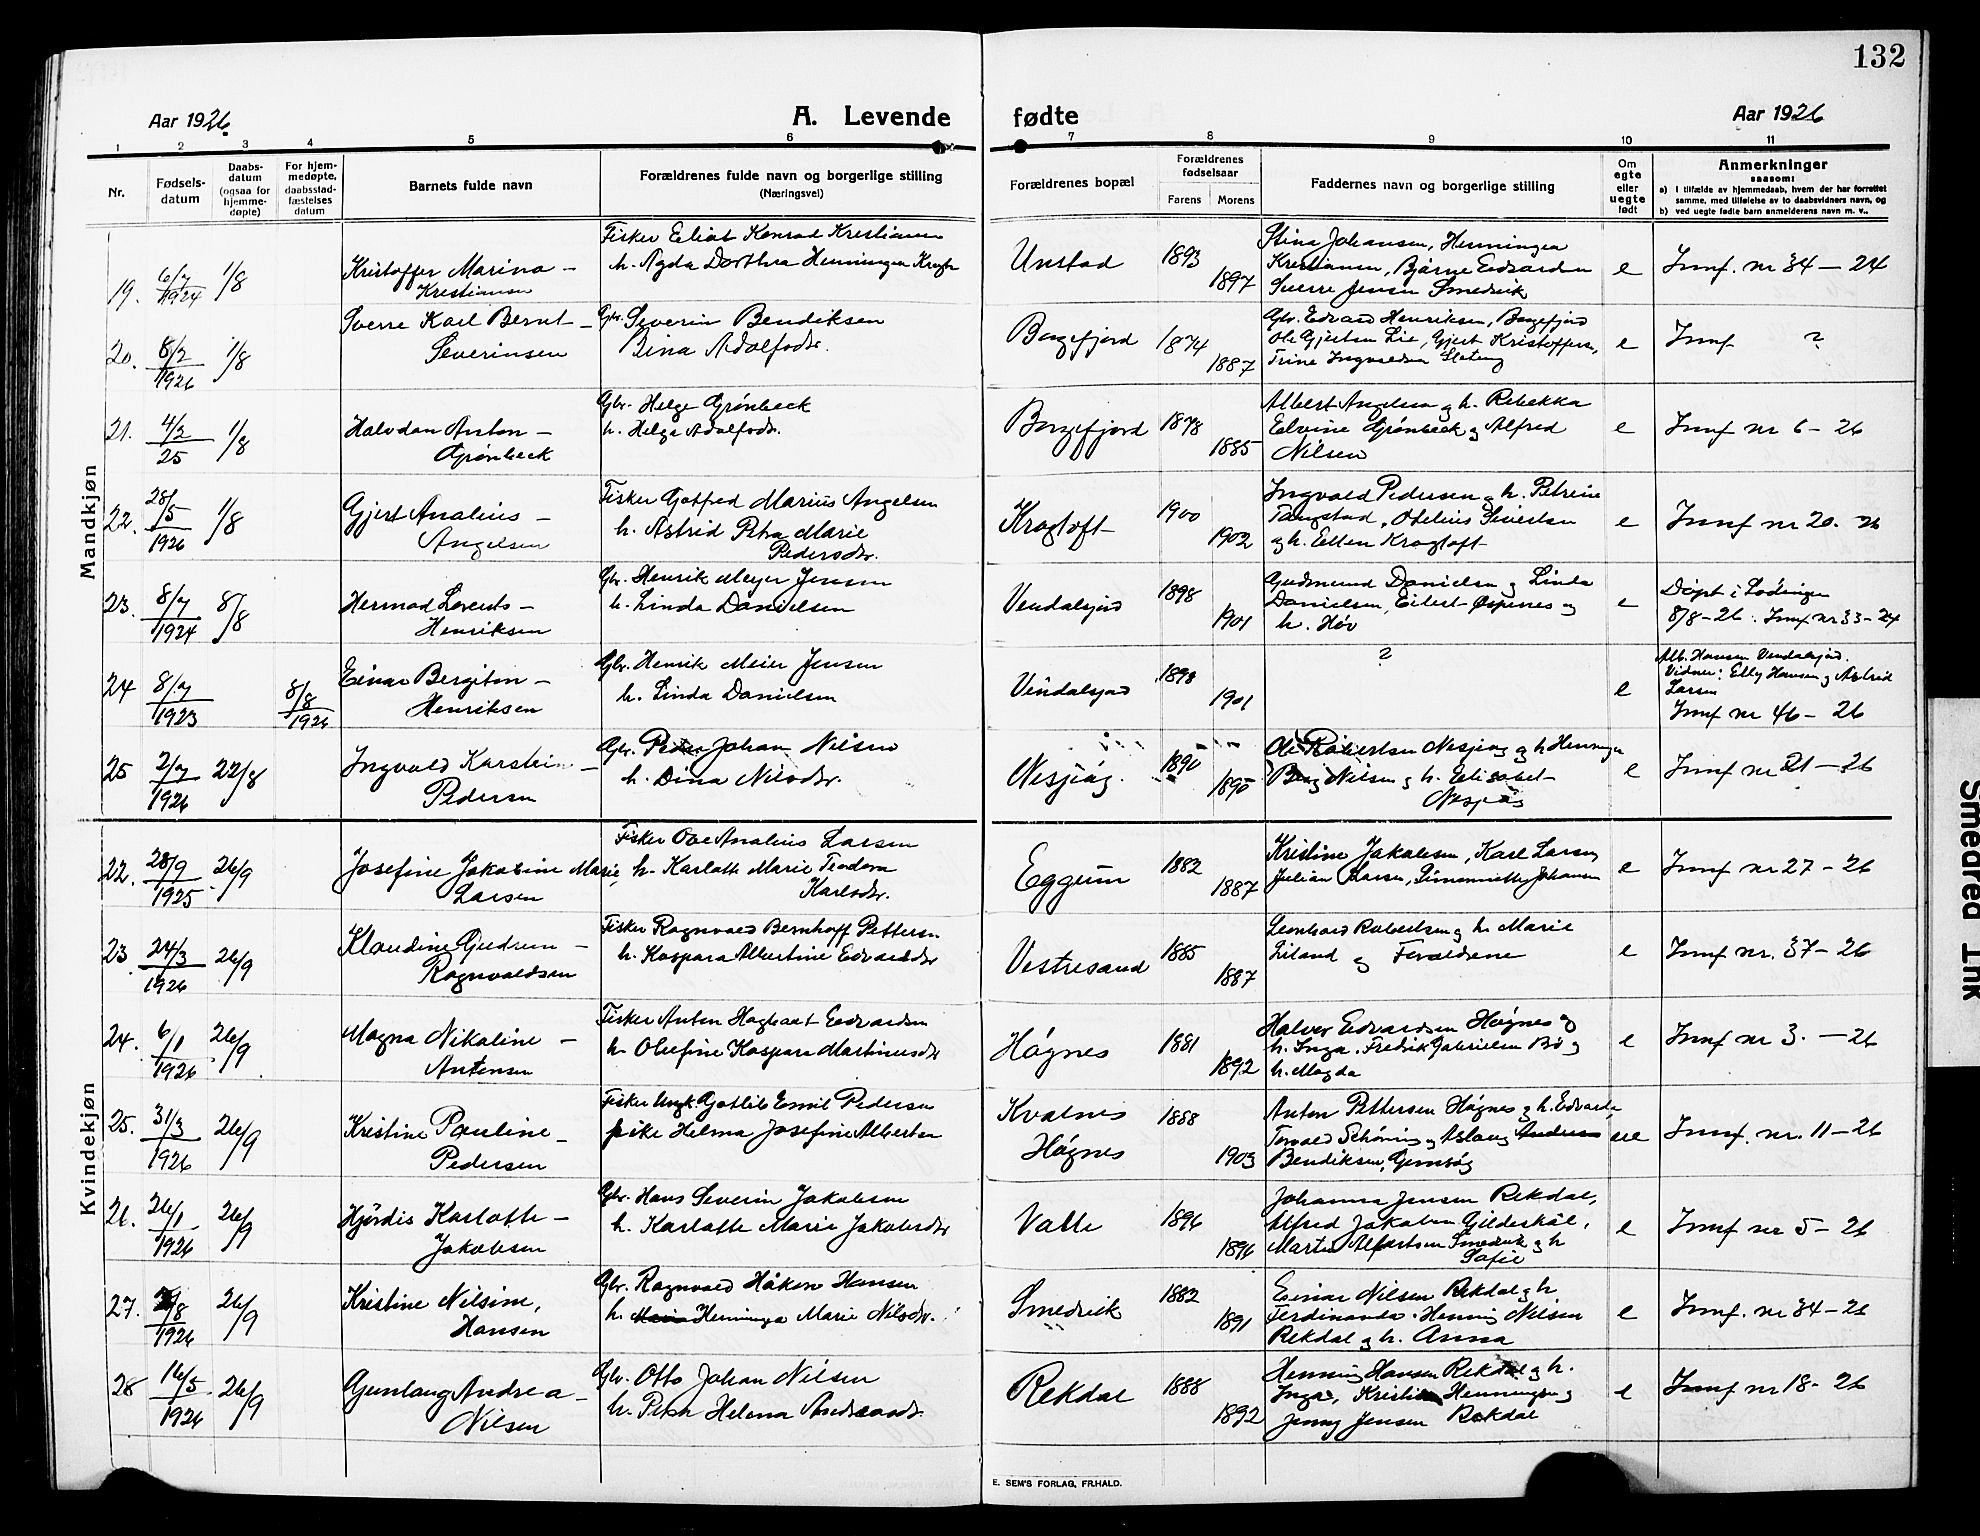 132
Aar 1926
A. Levende
fødte
Aar 1926
1 2 3 4 5 6 7 8 9 10 11
Nr.
Fødsels-
datum
Daabs-
datum
(ogsaa for
hjemme-
døpte)
For hjem-
medøpte,
daabsstad-
fæstelses
datum
Barnets fulde navn
Forældrenes fulde navn og borgerlige stilling
(Næringsvei)
Forældrenes bopæl
Forældrenes
fødselsaar
Farens Morens
Faddernes navn og borgerlige stilling
Om
egte
eller
uegte
født
Anmerkninger
saasom:
a) I tilfælde av hjemmedaab, hvem der har forrettet
samme, med tilføielse av to daabsvidners navn, og
b) ved uegte fødte barn anmelderens navn m. v..
Mandkjøn
19. 6/7 1924 1/8
Kristoffer Marino -
Kristiansen
Fisker Eliot Konrad Kristiansen
h. Agda Dorthea Henningsen
Unstad
1893
1897
Stina Johansen, Henninga
Kristiansen, Bjarne Edvardsen
Sverre Jensen Smedvik
e
Innf. nr 34 - 24
20. 8/2 1926 1/8
Sverre Karl Bernt -
Severinsen
Gbr. Severin Bendiksen
Dina Adolfsdr.
Borgefjord
1874
1887
Gbr. Edvard Henriksen, Borgefjord
Ole Gjertsen Lie, Gjert Kristoffersen,
Trine Ingvaldsen
e
Innf ?
21. 4/2 25 1/8
Halvdan Anton -
Grønbeck
Gbr. Helge Grønbeck
h. Helga Adolfsdr.
Borgefjord
1878
1885
Albert Angelsen og h. Rebekka
Edvine Grønbeck og Alfred
Nilsen
e
Innf nr 6 - 26
22. 28/5 1926 1/8
Gjert Analius -
Angelsen
Fisker Gotfred Marius Angelsen
h. Astrid Petra Marie
Pedersdr.
Krogtoft
1900
1902
Ingvald Pedersen og h. Petrine
Tangstad, Odelius Sivertsen
og h. Ellen Krogtoft
e
Innf nr 20. 26
23. 8/7 1924 8/8
Hermod Lorents -
Henriksen
Gbr. Henrik Meyer Jensen
h. Linda Danielsen
Vendalsjord
1898
1901
Gudmund Danielsen og Linda
Danielsen, Eilert Espenes og
h. Høv
e
Døpt i Lødingen
8/8 - 26. Innf nr 33 - 24
24 8/7 1923 8/8 1926
Einar Bergiton -
Henriksen
Gbr. Henrik Meier Jensen
h. Linda Danielsen
Vendalsjord
1898
1901
?
e
Alb. Hansen Vendalsjord.
Vidner: Elly Hansen og Astrid
Larsen
Innf nr 46 - 26
25 2/7 1926 22/8
Ingvald Karstein -
Pedersen
Gbr. Peder Johan Nilsen
h. Dina Nilsdr.
Nesjeøg.
1890
1890
Ole Robertsen Nesjeøg og h. Henninga
Berg Nilsen og h. Elisabet
e
Innf nr 21 - 26
Kvindekjøn
22. 28/9 1925. 26/9
Josefine Jakobine Marie,
Larsen
Fisker Ove Analius Larsen
h. Karlotte Marie Teodora
Karlsdr.
Eggum
1882
1887
Kristine Jakobsen, Karl Larsen
Julian Larsen, Simonette Johansen
e
Innf nr 27 - 26
23 24/3 1926 26/9
Klaudine Gudrun -
Ragnvaldsen
Fisker Ragnvald Bernhoff Pettersen
h. Kaspara Albertine Edvardsdr
Vestresand
1885
1887
Leonhard Robertsen og h. Marie
Liland og Forældrene
e
Innf nr. 37 - 26
24. 6/1 1926 26/9
Magna Nikoline -
Antonsen
Fisker Anton Hagbart Edvardsen
h. Olufine Kaspara Martinusdr
Høgnes
1881
1892
Halvor Edvardsen Høgnes og
h. Inga. Fredrik Gabrielsen Bø og
h. Magda
e
Innf nr 3. - 26
25. 31/3 1926 26/9
Kristine Pauline -
Pedersen
Fisker Ungk. Gotlib Emil Pedersen
pike Helma Josefine Albertsen
Kvalnes
Høgnes
1888
1903
Anton Pettersen Høgnes og h. Edvarda
Torvald Schøning og Aslaug
Bendiksen,
ue
Innf. nr. 11 - 26
26. 26/1 1926 26/9
Hjørdis Karlotte -
Jakobsen
Gbr. Hans Severin Jakobsen
h. Karlotte Marie Jakobsdr
Valle
1896
1896
Johanna Jensen Rekdal,
Alfred Jakobsen Gildeskål,
Martin Albertsen Smedvik og h
Sofie
e
Innf nr 5 - 26
27. /8 1926 26/9
Kristine Nilsine,
Hansen
Gbr. Ragnvald Håkon Hansen
h. Henninga Marie Nilsdr.
Smedvik
1882
1891
Einar Nilsen Rekdal og h.
Ferdinanda. Henning Nilsen
Rekdal og h. Anna
e
Innf. nr 34 - 26
28 16/5 1926 26/9
Gunlaug Andrea -
Nilsen
Gbr. Otto Johan Nilsen
h. Petra Helena Andreasdr.
Rekdal
1888
1892
Henning Hansen Rekdal og h.
Inga, Kristian Henningsen og
Jenny Jensen Rekdal
e
Innf nr 18 - 26
E. SEM'S FORLAG, FR.HALD.
Smeared Ink